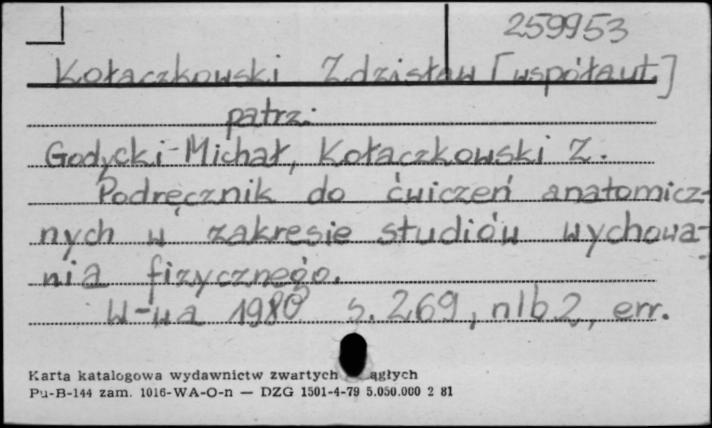 259953
Kołaczkowski Zdzisław [współaut.]
patrz:
Godycki Michał, Kołaczkowski Z.
Podręcznik do ćwiczeń anatomicz-
nych w zakresie studiów wychowa-
nia fizycznego.
W-wa 1980 s. 269, nlb 2, err.
Karta katalogowa wydawnictw zwartych ągłych
Pu-B-144 zam. 1016-WA-O-n — DZG 1501-4-79 5.050.000 2 81